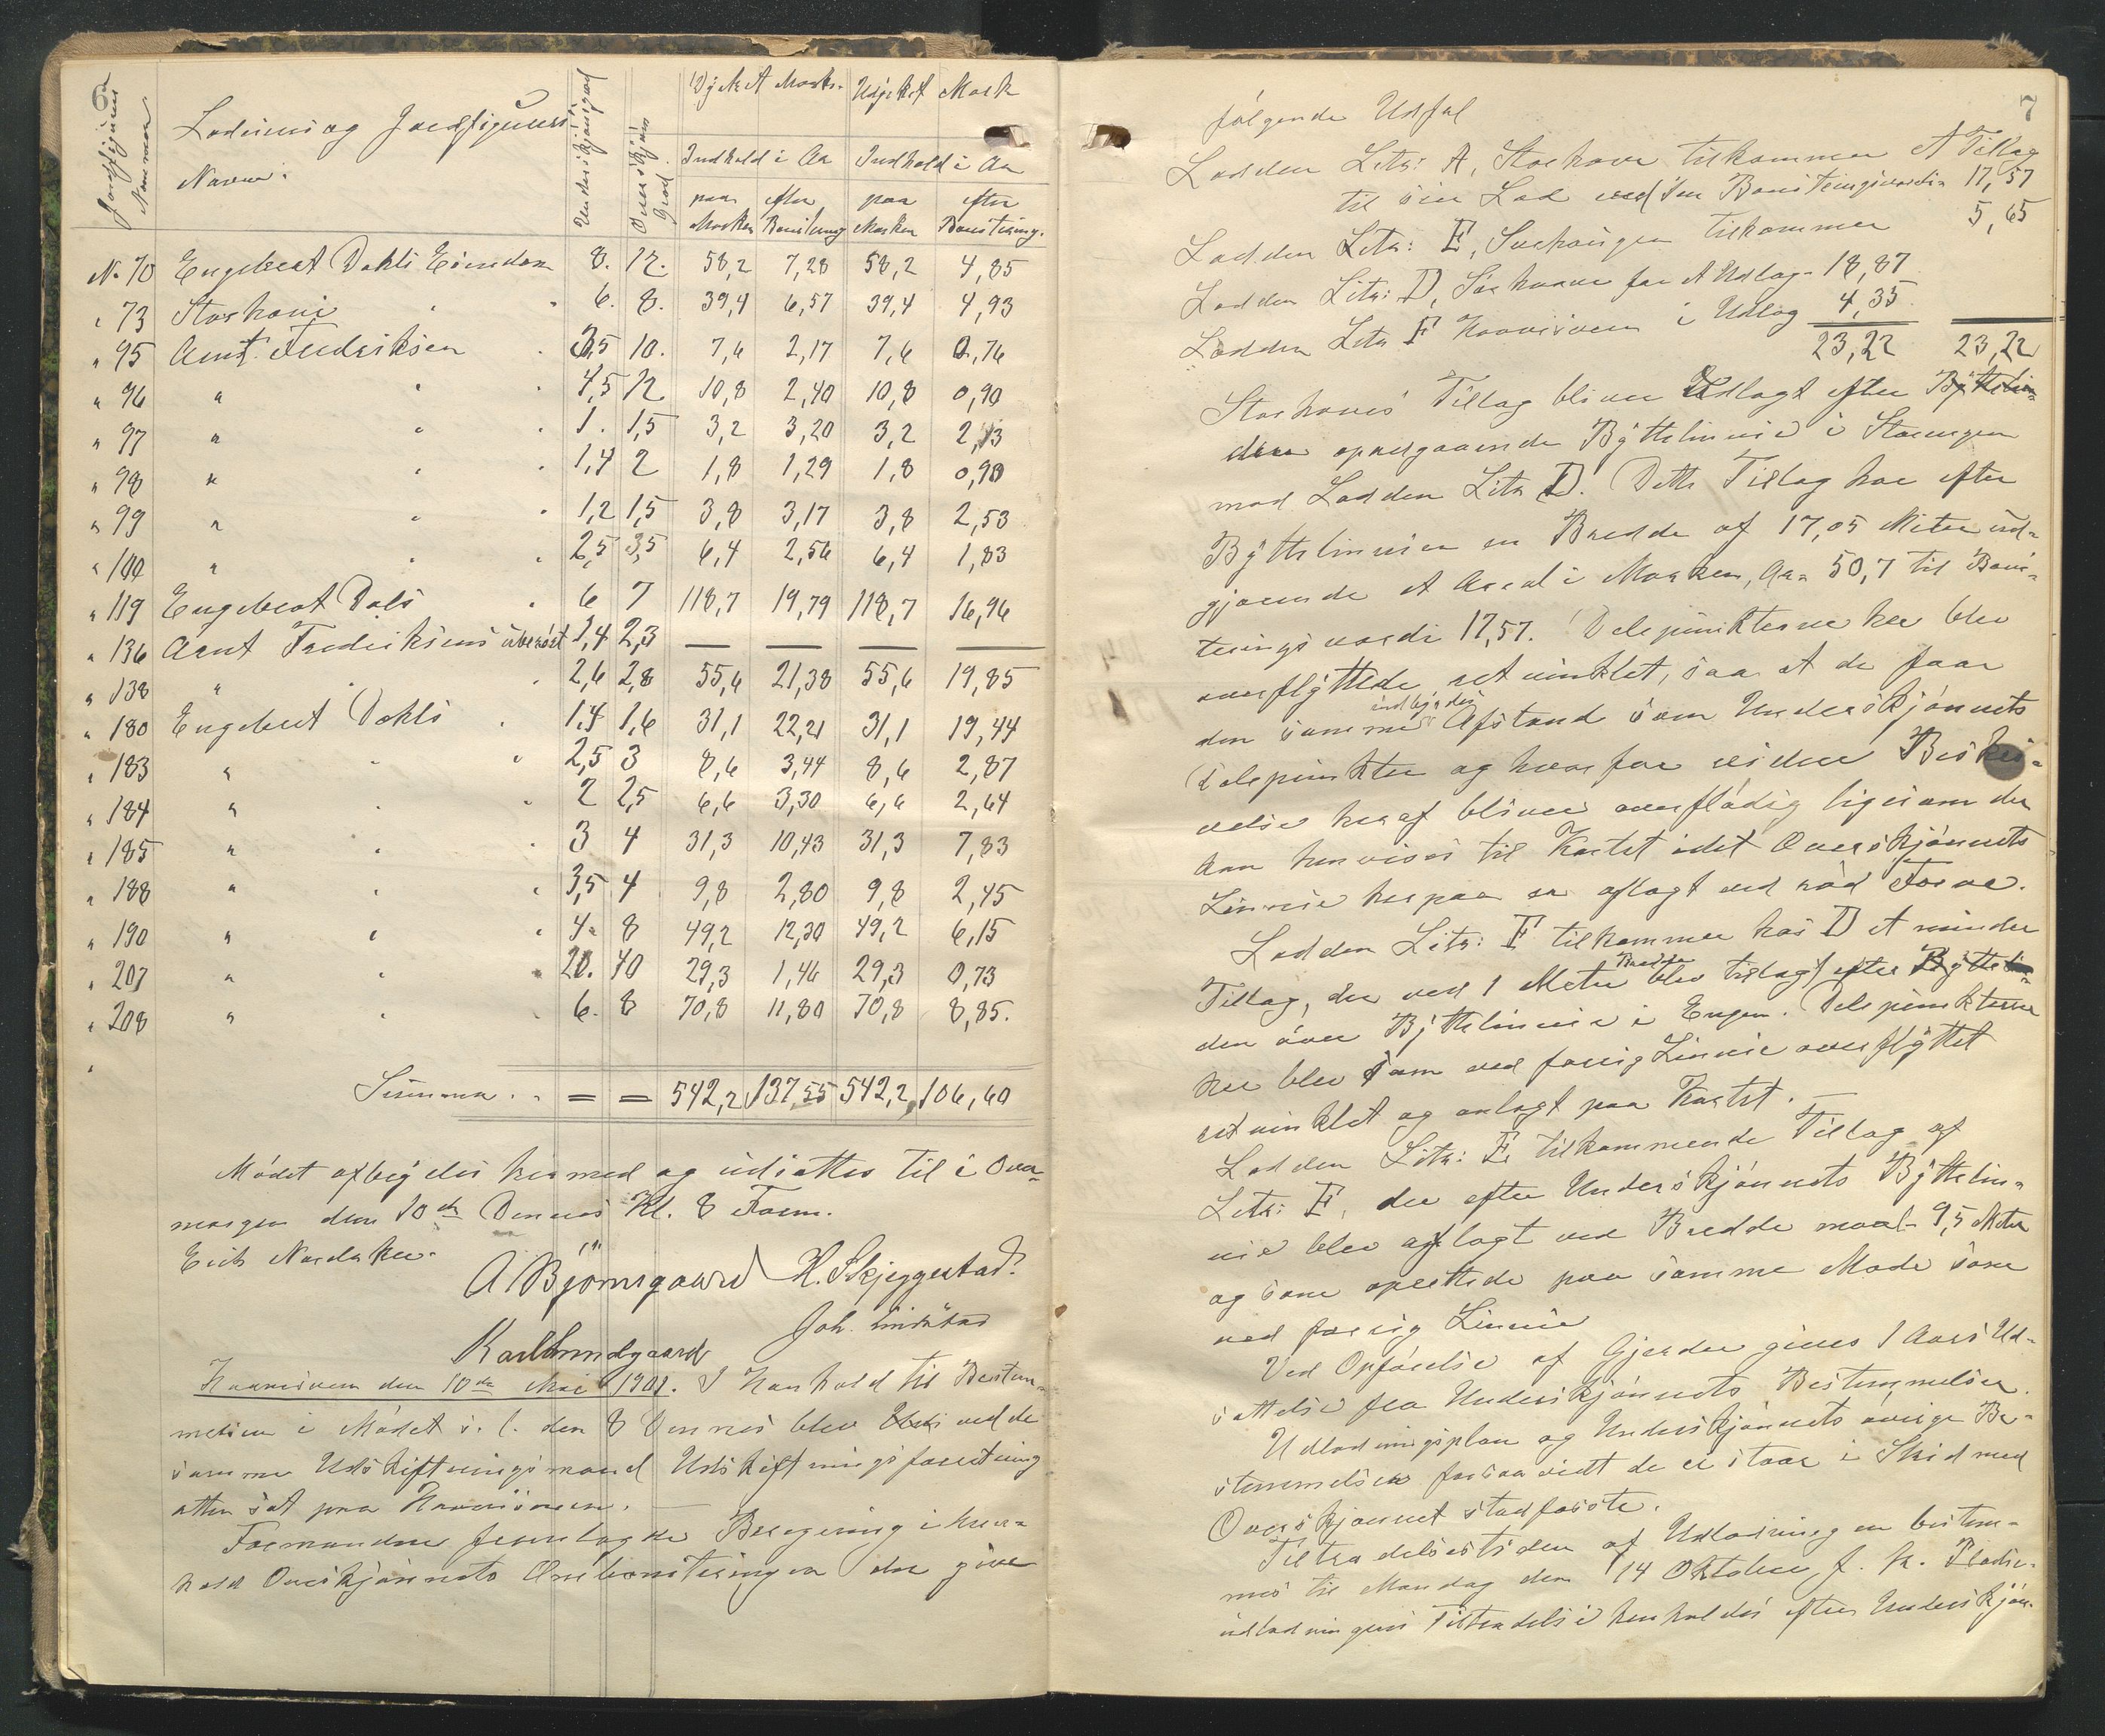 6
Jordfigurens Nummer.
Lodeiers og Jordfigurens
Navne.
Underskjønsgrad
Overskjøns Grad.
Dyrket Mark. Udyrket Mark
Indhold i Aa Indhold i Aa
paa efter paa efter
Marken Bonitering Marken Bonitering.
No 70 Engebret Dahls Eiendom 8. 12. 58,2 7,28 58,2 4,85
" 73 Storhove " " 6. 8. 39,4 6,57 39,4 4,93
" 95 Arnt Fredriksen " 3,5 10. 7,6 2,17 7,6 0,76
" 96 " " " 4,5 12 10,8 2,40 10,8 0,90
" 97 " " " 1. 1,5 3,2 3,20 3,2 2,13
" 98 " " " 1,4 2 1,8 1,29 1,8 0,90
" 99 " " " 1,2 1,5 3,8 3,17 3,8 2,53
" 100 " " " 2,5 3,5 6,4 2,56 6,4 1,83
" 119 Engebret Dals " 6 7 118,7 19,79 118,7 16,96
" 136 Arnt Frederiksens uberört 1,4 2,3 — — — —
" 138 " " " 2,6 2,8 55,6 21,38 55,6 19,85
" 180 Engebret Dahls " 1,4 1,6 31,1 22,21 31,1 19,44
" 183 " " " 2,5 3 8,6 3,44 8,6 2,87
" 184 " " " 2 2,5 6,6 3,30 6,6 2,64
" 185 " " " 3 4 31,3 10,43 31,3 7,83
" 188 " " " 3,5 4 9,8 2,80 9,8 2,45
" 190 " " " 4. 8 49,2 12,30 49,2 6,15
" 207 " " " 20. 40 29,3 1,46 29,3 0,73
" 208 " " " 6. 8 70,8 11,80 70,8 8,85.
"
Summa . . = = 542,2 137,55 542,2 106,60
Mödet afbrydes hermed og udsættes til i Over-
morgen den 10de Dennes Kl. 8 Form.
Erik Nordaker.
A Bjørnsgaard H. Skjeggestad.
Joh.
Karl Lundgaard
Hovemoen den 10de Mai 1901. I Henhold til Bestem-
melsen i Mødet s. l. den 8 Dennes blev ved de
samme Udskiftningsmænd Udskiftningsforretning
atter sat paa Hovemoen. —
Formanden fremlagde Beregning i Hen-
hold Overskjønnets Ombonitering der giver
7
følgende Udfal
Lodden Litr: A, Storhove tilkommer et Tillæg
til sin Lod ved sin Boniteringsværdi= 17,57
Lodden Litr: E, Sorhaugen tilkommer 5,65
Lodden Litr: D, Sörhove faar et Udlæg= 18,87
Lodden Litr F Hovemoen i Udlæg 4,35
23,22 23,22
Storhoves Tillæg bliver Udlagt efter Byttelin-
dere opadgaaende Byttelinnie i Storengen
mod Lodden Litr D. Dette Tillæg har efter
Byttelinnien en Bredde af 17,05 Meter ud-
gjørende et Areal i Marken, Ar= 50,7 til Boni-
teringsværdi 17,57. Delepunkterne her blev
overflyttede retvinklet, saa at de faar
den samme indbyrdes Afstand som Underskjönnets
Delepunkter og hvorfor videre Beskri-
velse heraf bliver overflödig ligesom der
kan henvises til Kartet idet Overskjönnets
Linnie herpaa er aflagt ved röd Farve.
Lodden Litr: F tilkommer hos D et mindre
Tillæg, der ved 1 Meter Bredde blev tillagt efter Byttelin-
den över Byttelinnie i Engen. Delepunkterne
her blev som ved forrig Linnie overflyttet
retvinklet og anlagt paa Kartet. —
Lodden Litr: E tilkommende Tillæg af
Litr: F, der efter Underskjönnets Byttelin-
nie blev aflagt ved Bredde maal= 9,5 Meter
og som oprettede paa samme Maade som
ved forrig Linnie
Ved Opförelse af Gjerder gives 1 Aars Ud-
sættelse fra Underskjönnets Bestemmelser.
Udlodningsplan og Underskjönnets övrige Be-
stemmelser forsaavidt de ei staar i Strid med
Overskjønnet stadfæste.
Tiltrædelsestiden af Udlodningen bestem-
mes til Mandag den 14 Oktober f. k.
udlodningens Tiltrædelse henholdes efter Underskjön-